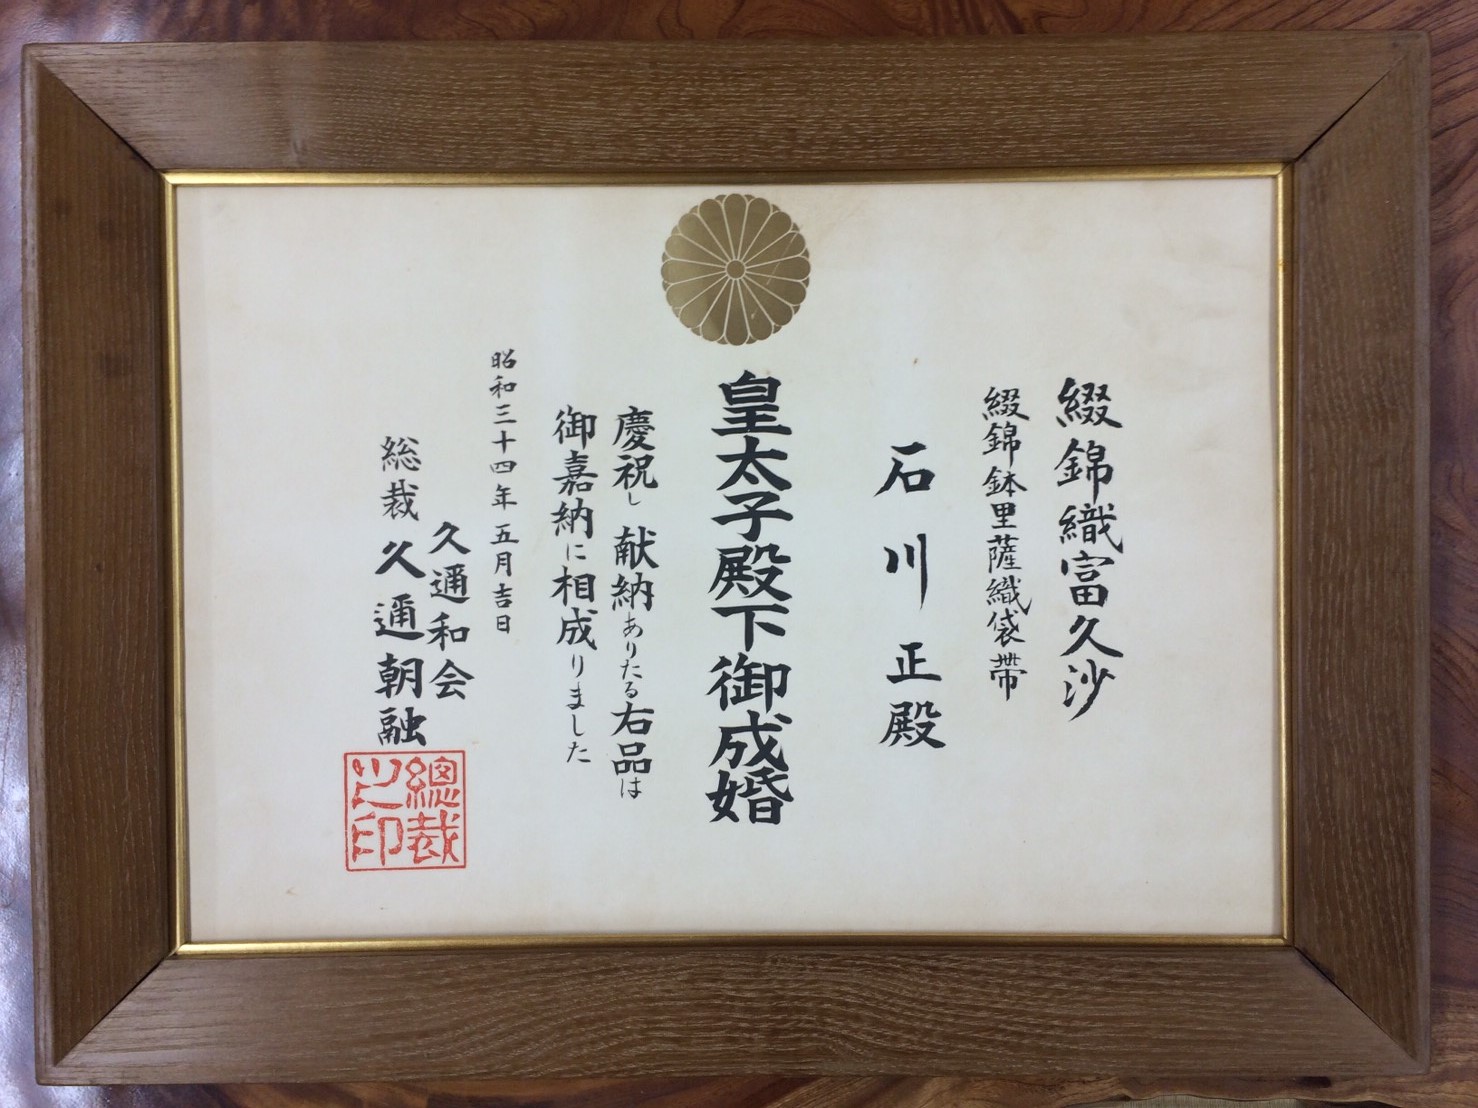 綴錦織富久沙
綴錦鉢里薩織袋帯
石川正殿
皇太子殿下御成婚
慶祝し献納ありたる右品は
御嘉納に相成りました
昭和三十四年五月吉日
久邇和会
総裁久邇朝融
總裁
之印